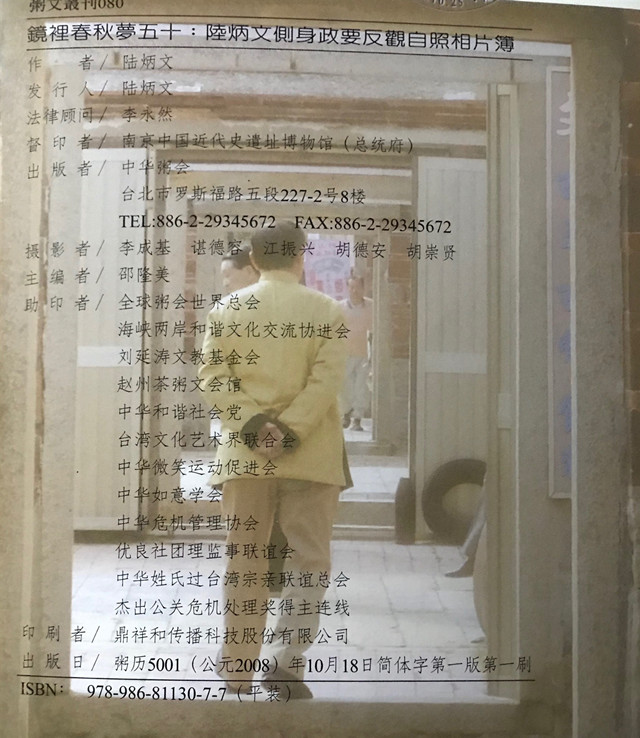 粥文叢刊080
鏡裡春秋夢五十：陸炳文側身政要反觀自照相片簿
作者/ 陆炳文
发行人/ 陆炳文
法律顾问/ 李永然
督印者/ 南京中国近代史遗址博物馆（总统府）
出版者/ 中华粥会
台北市罗斯福路五段227-2号8楼
TEL:886-2-29345672 FAX:886-2-29345672
摄影者/ 李成基 谌德容 江振兴 胡德安 胡崇贤
主编者/ 邵隆美
助印者/ 全球粥会世界总会
海峡两岸和谐文化交流协进会
刘延涛文教基金会
赵州茶粥文会馆
中华和谐社会党
台湾文化艺术界联合会
中华微笑运动促进会
中华如意学会
中华危机管理协会
优良社团理监事联谊会
中华姓氏过台湾宗亲联谊总会
杰出公关危机处理奖得主连线
印刷者/ 鼎祥和传播科技股份有限公司
出版日/ 粥历5001（公元2008）年10月18日简体字第一版第一刷
ISBN： 978-986-81130-7-7（平装）